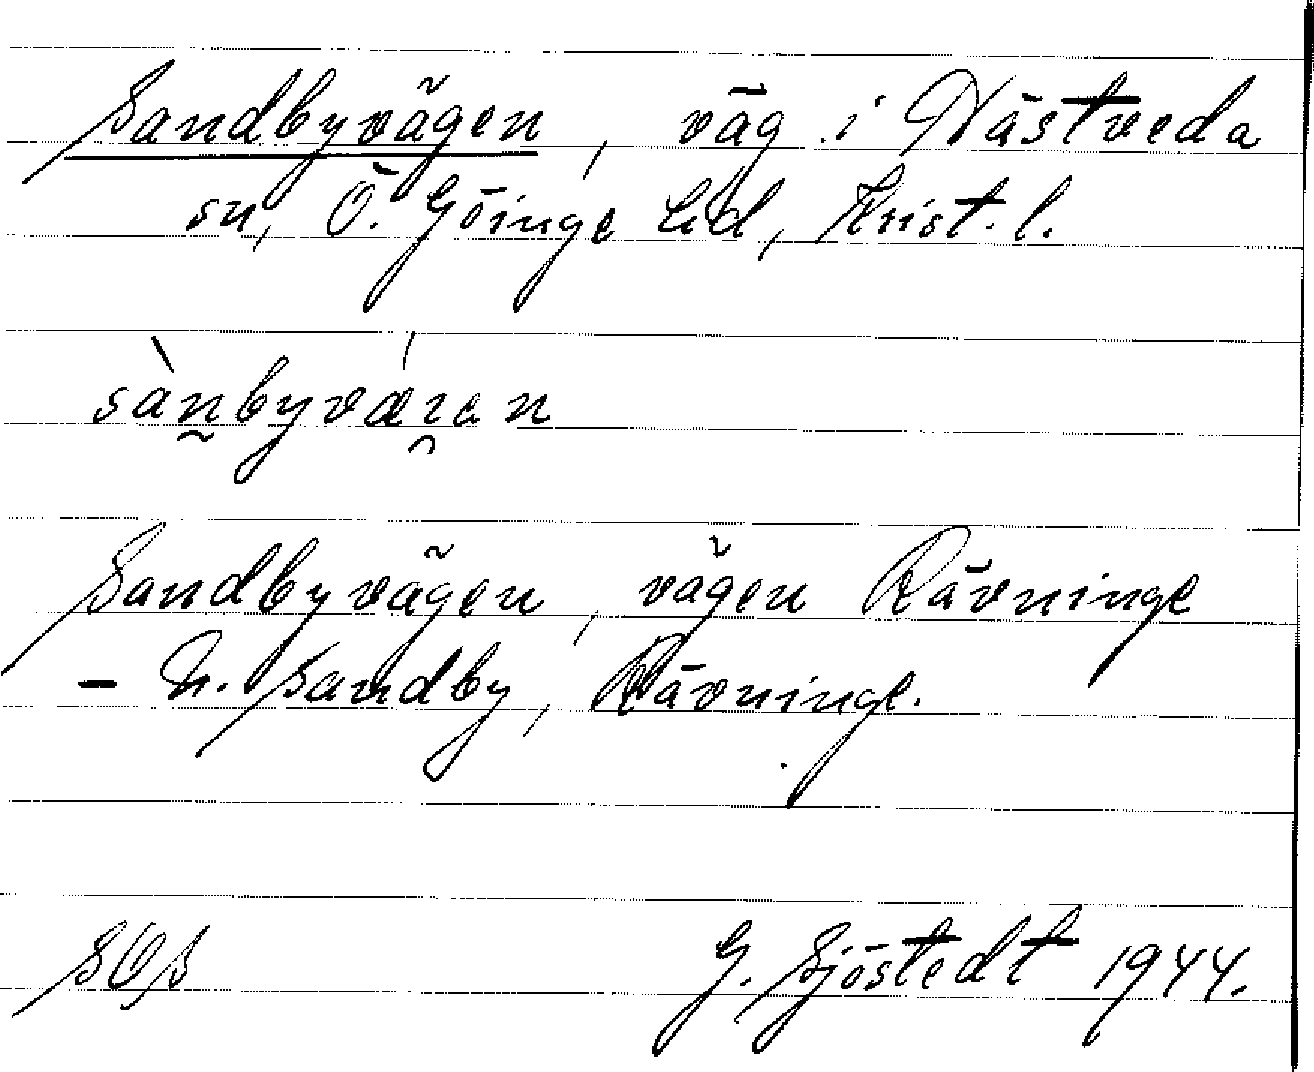 Sandbyvägen, väg i Nästveda
sn, Ö. Göinge hd, Krist. l.
sànbyvǽɪan
Sandbyvägen, vägen Rävninge
– N. Sandby, Rävninge.
SOS G. Sjöstedt 1944.